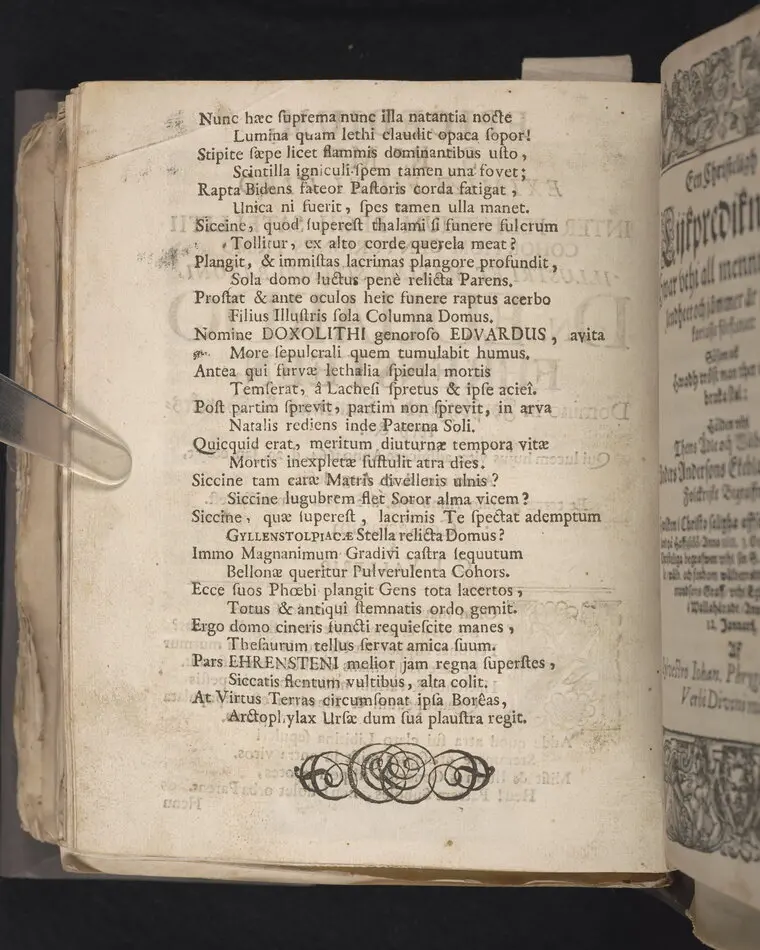 Nunc hæc ſuprema nunc illa natantia nocte
Lumina quam lethi claudit opaca ſopor!
Stipite ſæpe licet flammis dominantibus uſto,
Scintilla igniculi ſpem tamen una fovet;
Rapta Bidens fateor Paſtoris corda fatigat,
Unica ni fuerit, ſpes tamen ulla manet.
Siccine, quod ſupereſt thalami ſi funere fulcrum
Tollitur, ex alto corde querela meat?
Plangit, & immiſtas lacrimas plangore profundit,
Sola domo luctus penè relicta Parens.
Proſtat & ante oculos heic funere raptus acerbo
Filius Illuſtris ſola Columna Domus.
Nomine DOXOLITHI generoſo EDVARDUS, avita
More ſepulcrali quem tumulabit humus.
Antea qui furvæ lethalia ſpicula mortis
Temſerat, â Lacheſi ſpretus & ipſe acieî.
Poſt partim ſprevit, partim non ſprevit, in arva
Natalis rediens inde Paterna Soli.
Quicquid erat, meritum diuturnæ tempora vitæ
Mortis inexpletæ ſuſtulit atra dies.
Siccine tam caræ Matris divelleris ulnis?
Siccine lugubrem flet Soror alma vicem?
Siccine, quæ ſupereſt, lacrimis Te ſpectat ademptum
GYLLENSTOLPIACÆ Stella relicta Domus?
Immo Magnanimum Gradivi caſtra ſequutum
Bellonæ queritur Pulverulenta Cohors.
Ecce ſuos Phœbi plangit Gens tota lacertos,
Totus & antiqui ſtemnatis ordo gemit.
Ergo domo cineris functi requieſcite manes,
Theſaurum tellus ſervat amica ſuum.
Pars EHRENSTENI melior jam regna ſuperſtes,
Siccatis flentum vultibus, alta colit.
At Virtus Terras circumſonat ipſa Borêas,
Arctophylax Urſæ dum ſuâ plauſtra regit.
Em Chriſteligh
Lijkpredikn
12. Januarij
Af
Johan.